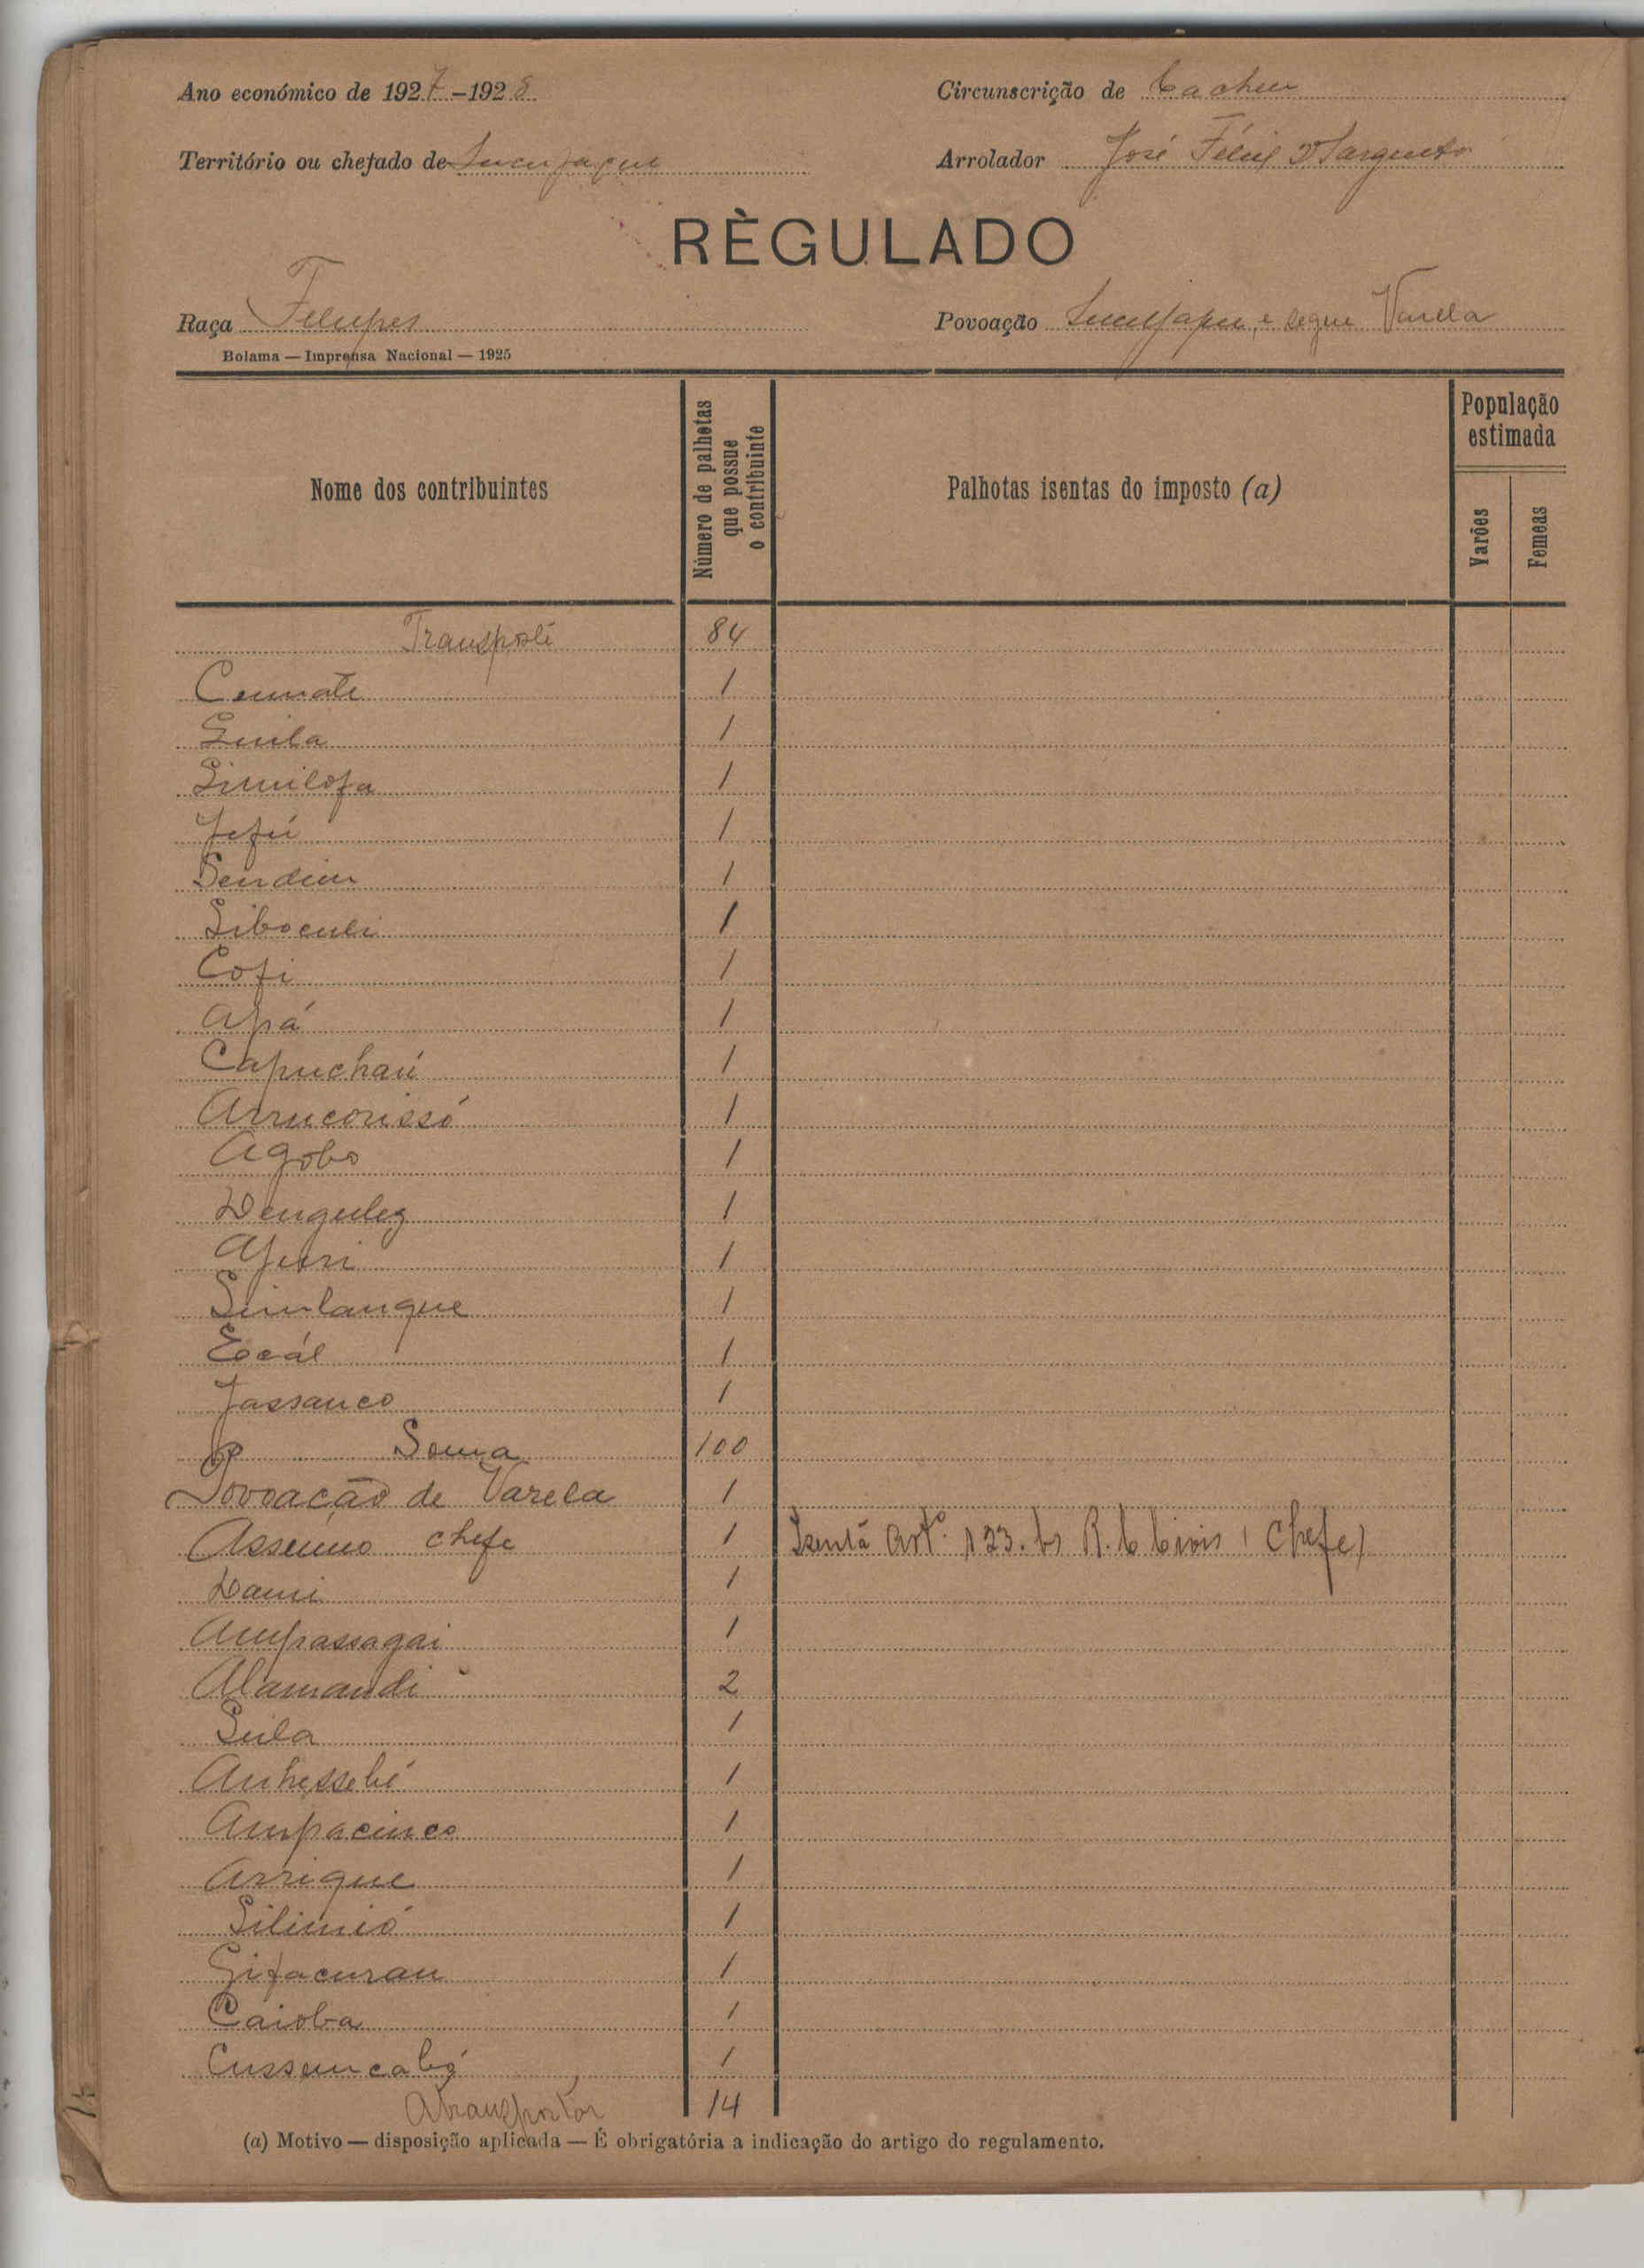 Ano económico de 1927-1928
Circunscrição de Cacheu
Território ou chefado de Sucujaque
Arrolador José Féliz 2º Sargento
RÈGULADO
Raça Felupes
Povoação Sucujaque, e segue Varela
Bolama — Imprensa Nacional — 1925
Nome dos contribuintes
Número de palhotas que possue o contribuinte
Palhotas isentas do imposto (a)
População estimada
Varões
Femeas
Transporte 84
Cumate 1
Guila 1
Similofa 1
Jefú 1
Sendim 1
Siboculi 1
Cofi 1
Apá 1
Capuchaú 1
Arrucorissó 1
Agobo 1
Denguley 1
Ajuri 1
Simlangue 1
Ecoál 1
Jassanco 1
Soma 100
Povoação de Varela 1
Assemo chefe 1 Isentá Artº. 123. R. C Civis (Chefe)
Dami 1
Ampassagai 1
Alamandi 2
Suila 1
Anhessebé 1
Ampacinco 1
Arrigue 1
Silimió 1
Gifacuran 1
Caioba 1
Cussumcabó 1
A transportar 14
(a) Motivo — disposição aplicada — É obrigatória a indicação do artigo do regulamento.